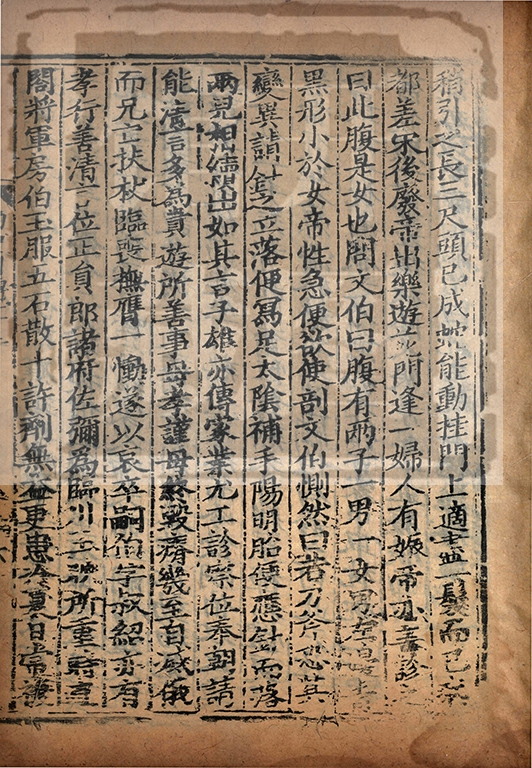 稍引之長三尺頭已成蛇能動挂門上適盡一髮而已
都差宋後廢帝出樂遊苑門逢一婦人有娠帝亦善診之
曰此腹是女也問文伯曰腹有兩子一男一女男左邊青
黑形小於女帝性急便欲使剖文伯惻然曰若刀斧恐其
變異請針之立落便寫足太陰補手陽明胎便應針而落
兩兒相續出如其言子雄亦傳家業尤工診察位奉朝請
能清言多為貴遊所善事母孝謹母終毀瘠幾至自滅俄
而兄亡扶杖臨喪撫膺一慟遂以哀卒嗣伯字叔紹亦有
孝行善清言位正員郎諸府佐彌為臨川王映所重時直
閤將軍房伯玉服五石散十許劑無益更患冷夏日常複